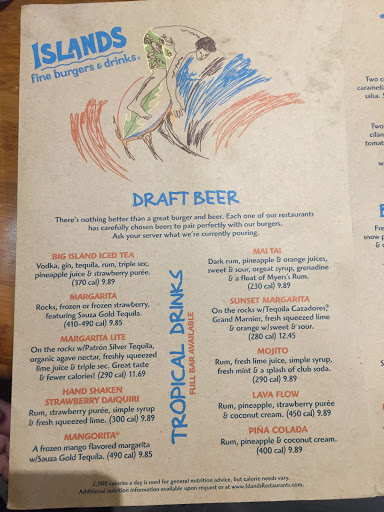 ISLANDS
fine burgers & drinks®
DRAFT BEER
There's nothing better than a great burger and beer. Each one of our restaurants
has carefully chosen beers to pair perfectly with our burgers.
Ask your server what we're currently pouring.
TROPICAL DRINKS
FULL BAR AVAILABLE
BIG ISLAND ICED TEA
Vodka, gin, tequila, rum, triple sec,
pineapple juice & strawberry purée.
(370 cal) 9.89
MARGARITA
Rocks, frozen or frozen strawberry,
featuring Sauza Gold Tequila.
(410-490 cal) 9.85
MARGARITA LITE
On the rocks w/Patrón Silver Tequila,
organic agave nectar, freshly squeezed
lime juice & triple sec. Great taste
& fewer calories! (290 cal) 11.69
HAND SHAKEN
STRAWBERRY DAIQUIRI
Rum, strawberry purée, simple syrup
& fresh squeezed lime. (300 cal) 9.89
MANGORITA®
A frozen mango flavored margarita
w/Sauza Gold Tequila. (490 cal) 9.85
MAI TAI
Dark rum, pineapple & orange juices,
sweet & sour, orgeat syrup, grenadine
& a float of Myers's Rum.
(230 cal) 9.89
SUNSET MARGARITA
On the rocks w/Tequila Cazadores,®
Grand Marnier, fresh squeezed lime
& orange w/sweet & sour.
(280 cal) 12.45
MOJITO
Rum, fresh lime juice, simple syrup,
fresh mint & a splash of club soda.
(290 cal) 9.89
LAVA FLOW
Rum, pineapple, strawberry purée
& coconut cream. (450 cal) 9.89
PIÑA COLADA
Rum, pineapple & coconut cream.
(400 cal) 9.89
2,000 calories a day is used for general nutrition advice, but calorie needs vary.
Additional nutrition information available upon request or at www.IslandsRestaurants.com.
Two c
caramela
salsa. S
Two
cilan
tomat